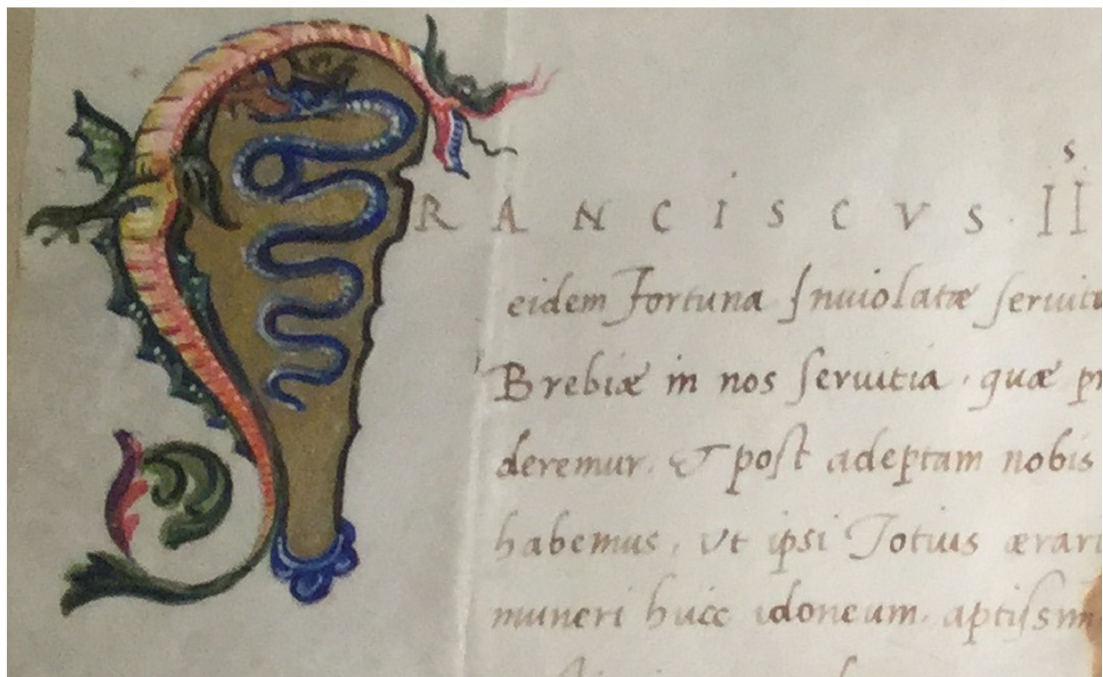 FRANCISCVS · II S
eidem Fortuna Inuiolatæ
Brebiæ in nos seruitia · quæ
deremur. & post adeptam nobis
habemus, Vt ipsi Totius
muneri huic idoneum.